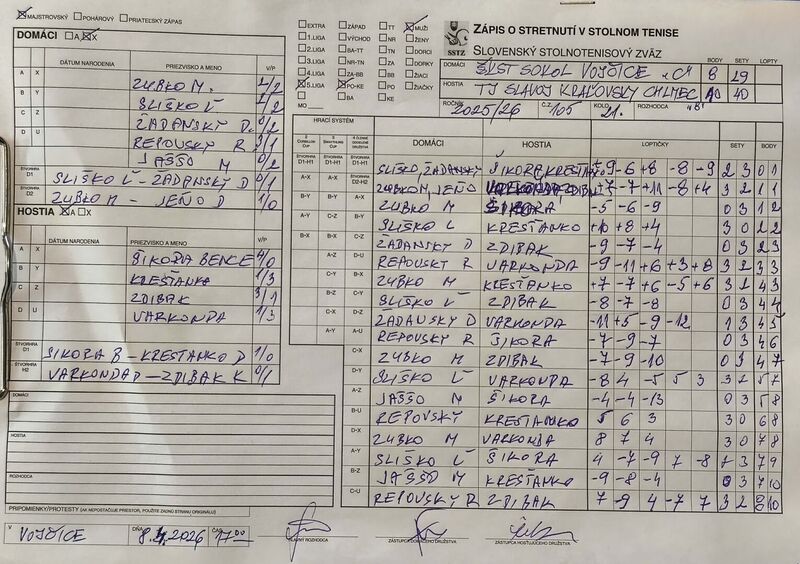 MAJSTROVSKÝ POHÁROVÝ PRIATEĽSKÝ ZÁPAS
DOMÁCI A X
DÁTUM NARODENIA PRIEZVISKO A MENO V/P
A X ZUBKO M. 2/2
B Y SLIŠKO Ľ 2/2
C Z ŽADANSKÝ D. 0/2
D U REPOVSKÝ R
JAŠŠO M 0/2
ŠTVORHRA D1 SLIŠKO Ľ - ŽADANSKÝ D 0/1
ŠTVORHRA D2 ZUBKO M - JEŇO D 1/0
HOSTIA A X
DÁTUM NARODENIA PRIEZVISKO A MENO V/P
A X ŠIKORA BENCE 4/0
B Y KREŠŤANKO 1/3
C Z ZDIBAK 3/1
D U VARKONDA 1/3
ŠTVORHRA D1 ŠIKORA B - KREŠŤANKO D 1/0
ŠTVORHRA H2 VARKONDA D - ZDIBAK K 0/1
DOMÁCI
HOSTIA
ROZHODCA
PRIPOMIENKY/PROTESTY (AK NEPOSTAČUJE PRIESTOR, POUŽITE ZADNÚ STRANU ORIGINÁLU)
V VOJČICE DŇA 8.4.2026 ČAS 17:00
HLAVNÝ ROZHODCA ZÁSTUPCA DOMÁCEHO DRUŽSTVA ZÁSTUPCA HOSŤUJÚCEHO DRUŽSTVA
EXTRA ZÁPAD TT MUŽI
1.LIGA VÝCHOD NR ŽENY
2.LIGA BA-TT TN DORCI
3.LIGA NR-TN ZA DORKY
4.LIGA ZA-BB BB ŽIACI
5.LIGA PO-KE PO ŽIAČKY
MO BA KE
SSTZ
ZÁPIS O STRETNUTÍ V STOLNOM TENISE
SLOVENSKÝ STOLNOTENISOVÝ ZVÄZ
BODY SETY LOPTY
DOMÁCI ŠKST SOKOL VOJČICE "C" 8 29
HOSTIA TJ SLAVOJ KRÁĽOVSKÝ CHLMEC "B" 10 40
ROČNÍK 2025/26 Č.Z. 105 KOLO 21. ROZHODCA
HRACÍ SYSTÉM DOMÁCI HOSTIA LOPTIČKY SETY BODY
SLIŠKO, ŽADANSKÝ ŠIKORA, KREŠŤANKO -9 -6 +8 -8 -9 2 3 0 1
ZUBKO M, JEŇO +7 -7 +11 -8 +4 3 2 1 1
ZUBKO M ŠIKORA -5 -6 -9 0 3 1 2
SLIŠKO Ľ KREŠŤANKO +10 +8 +4 3 0 2 2
ŽADANSKÝ D ZDIBAK -9 -7 -4 0 3 2 3
REPOVSKÝ R VARKONDA -9 -11 +6 +3 +8 3 2 3 3
ZUBKO M KREŠŤANKO +7 -7 +6 -5 +6 3 2 4 3
SLIŠKO Ľ ZDIBAK -8 -7 -8 0 3 4 4
ŽADANSKÝ D VARKONDA -11 +5 -9 -12 1 3 4 5
REPOVSKÝ R ŠIKORA -7 -9 -7 0 3 4 6
ZUBKO M ZDIBAK -7 -9 -10 0 3 4 7
SLIŠKO Ľ VARKONDA -8 4 -5 5 3 3 2 5 7
JAŠŠO M ŠIKORA -4 -4 -13 0 3 5 8
REPOVSKÝ KREŠŤANKO 5 6 3 3 0 6 8
ZUBKO M VARKONDA 8 7 4 3 0 7 8
SLIŠKO Ľ ŠIKORA 4 -7 -9 7 -8 2 3 7 9
JAŠŠO M KREŠŤANKO -9 -8 -4 0 3 7 10
REPOVSKÝ R ZDIBAK 7 -9 4 -7 7 3 2 8 10